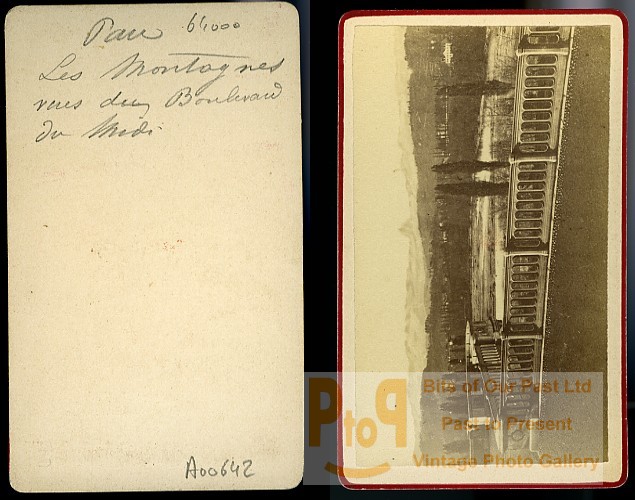 Pau 64000
Les Montagnes
vues du Boulevard
du Midi
A00642
PtoP
Bits of Our Past Ltd
Past to Present
Vintage Photo Gallery